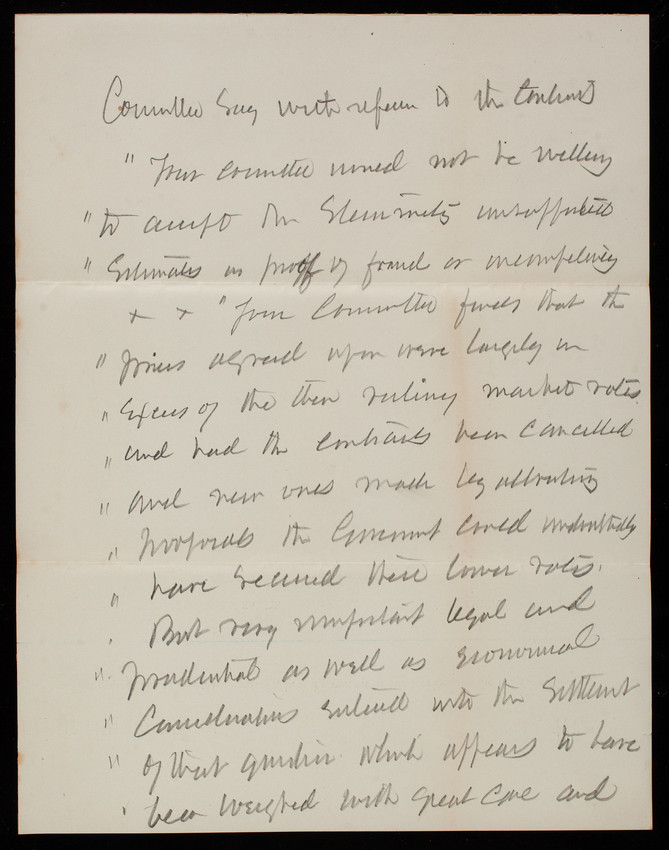 Committee say with refern to the Contracts
" Your committee would not be willing
" to accept Mr Steinmetz unsupported
" Estimates as proof of fraud or incompetency
x x " Your Committee finds that the
" prices agreed upon were largely in
" Excess of the then ruling market rates
" and had the contracts been cancelled
" and new ones made by advertising
" proposals the Government could undoubtedly
" have secured these lower rates.
" But very important legal and
" prudential as well as economical
" Considerations entered into the Settlement
" of that question which appears to have
" been weighed with great care and